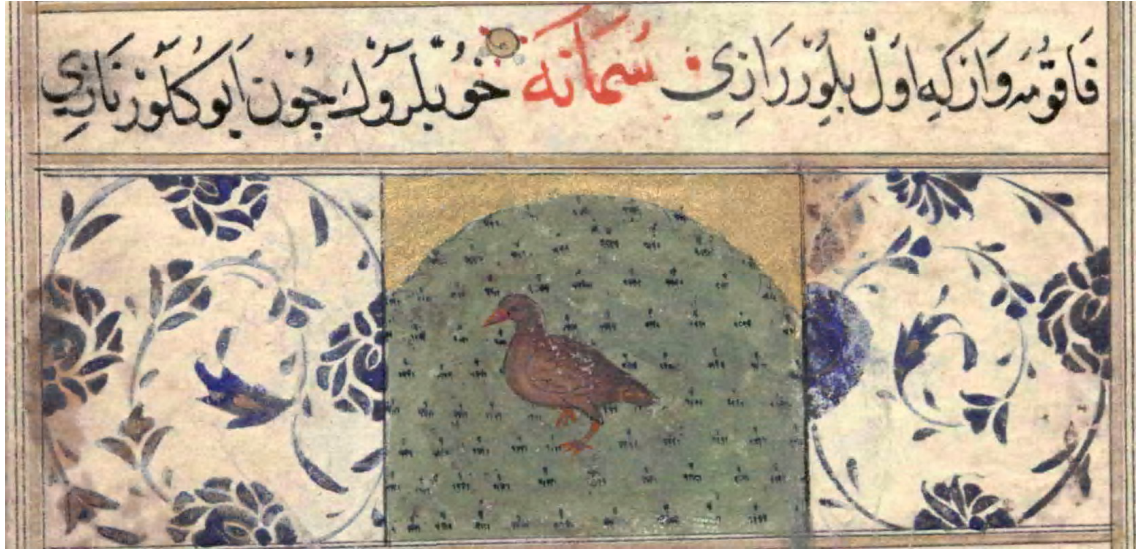 قَاتُومَه وَارْ كِه اَوَلْ بِلُوررَازِي سُمَانَه خُوبْلَرُوكْ چُونْ اَيُو كَلُورْ نَازِي